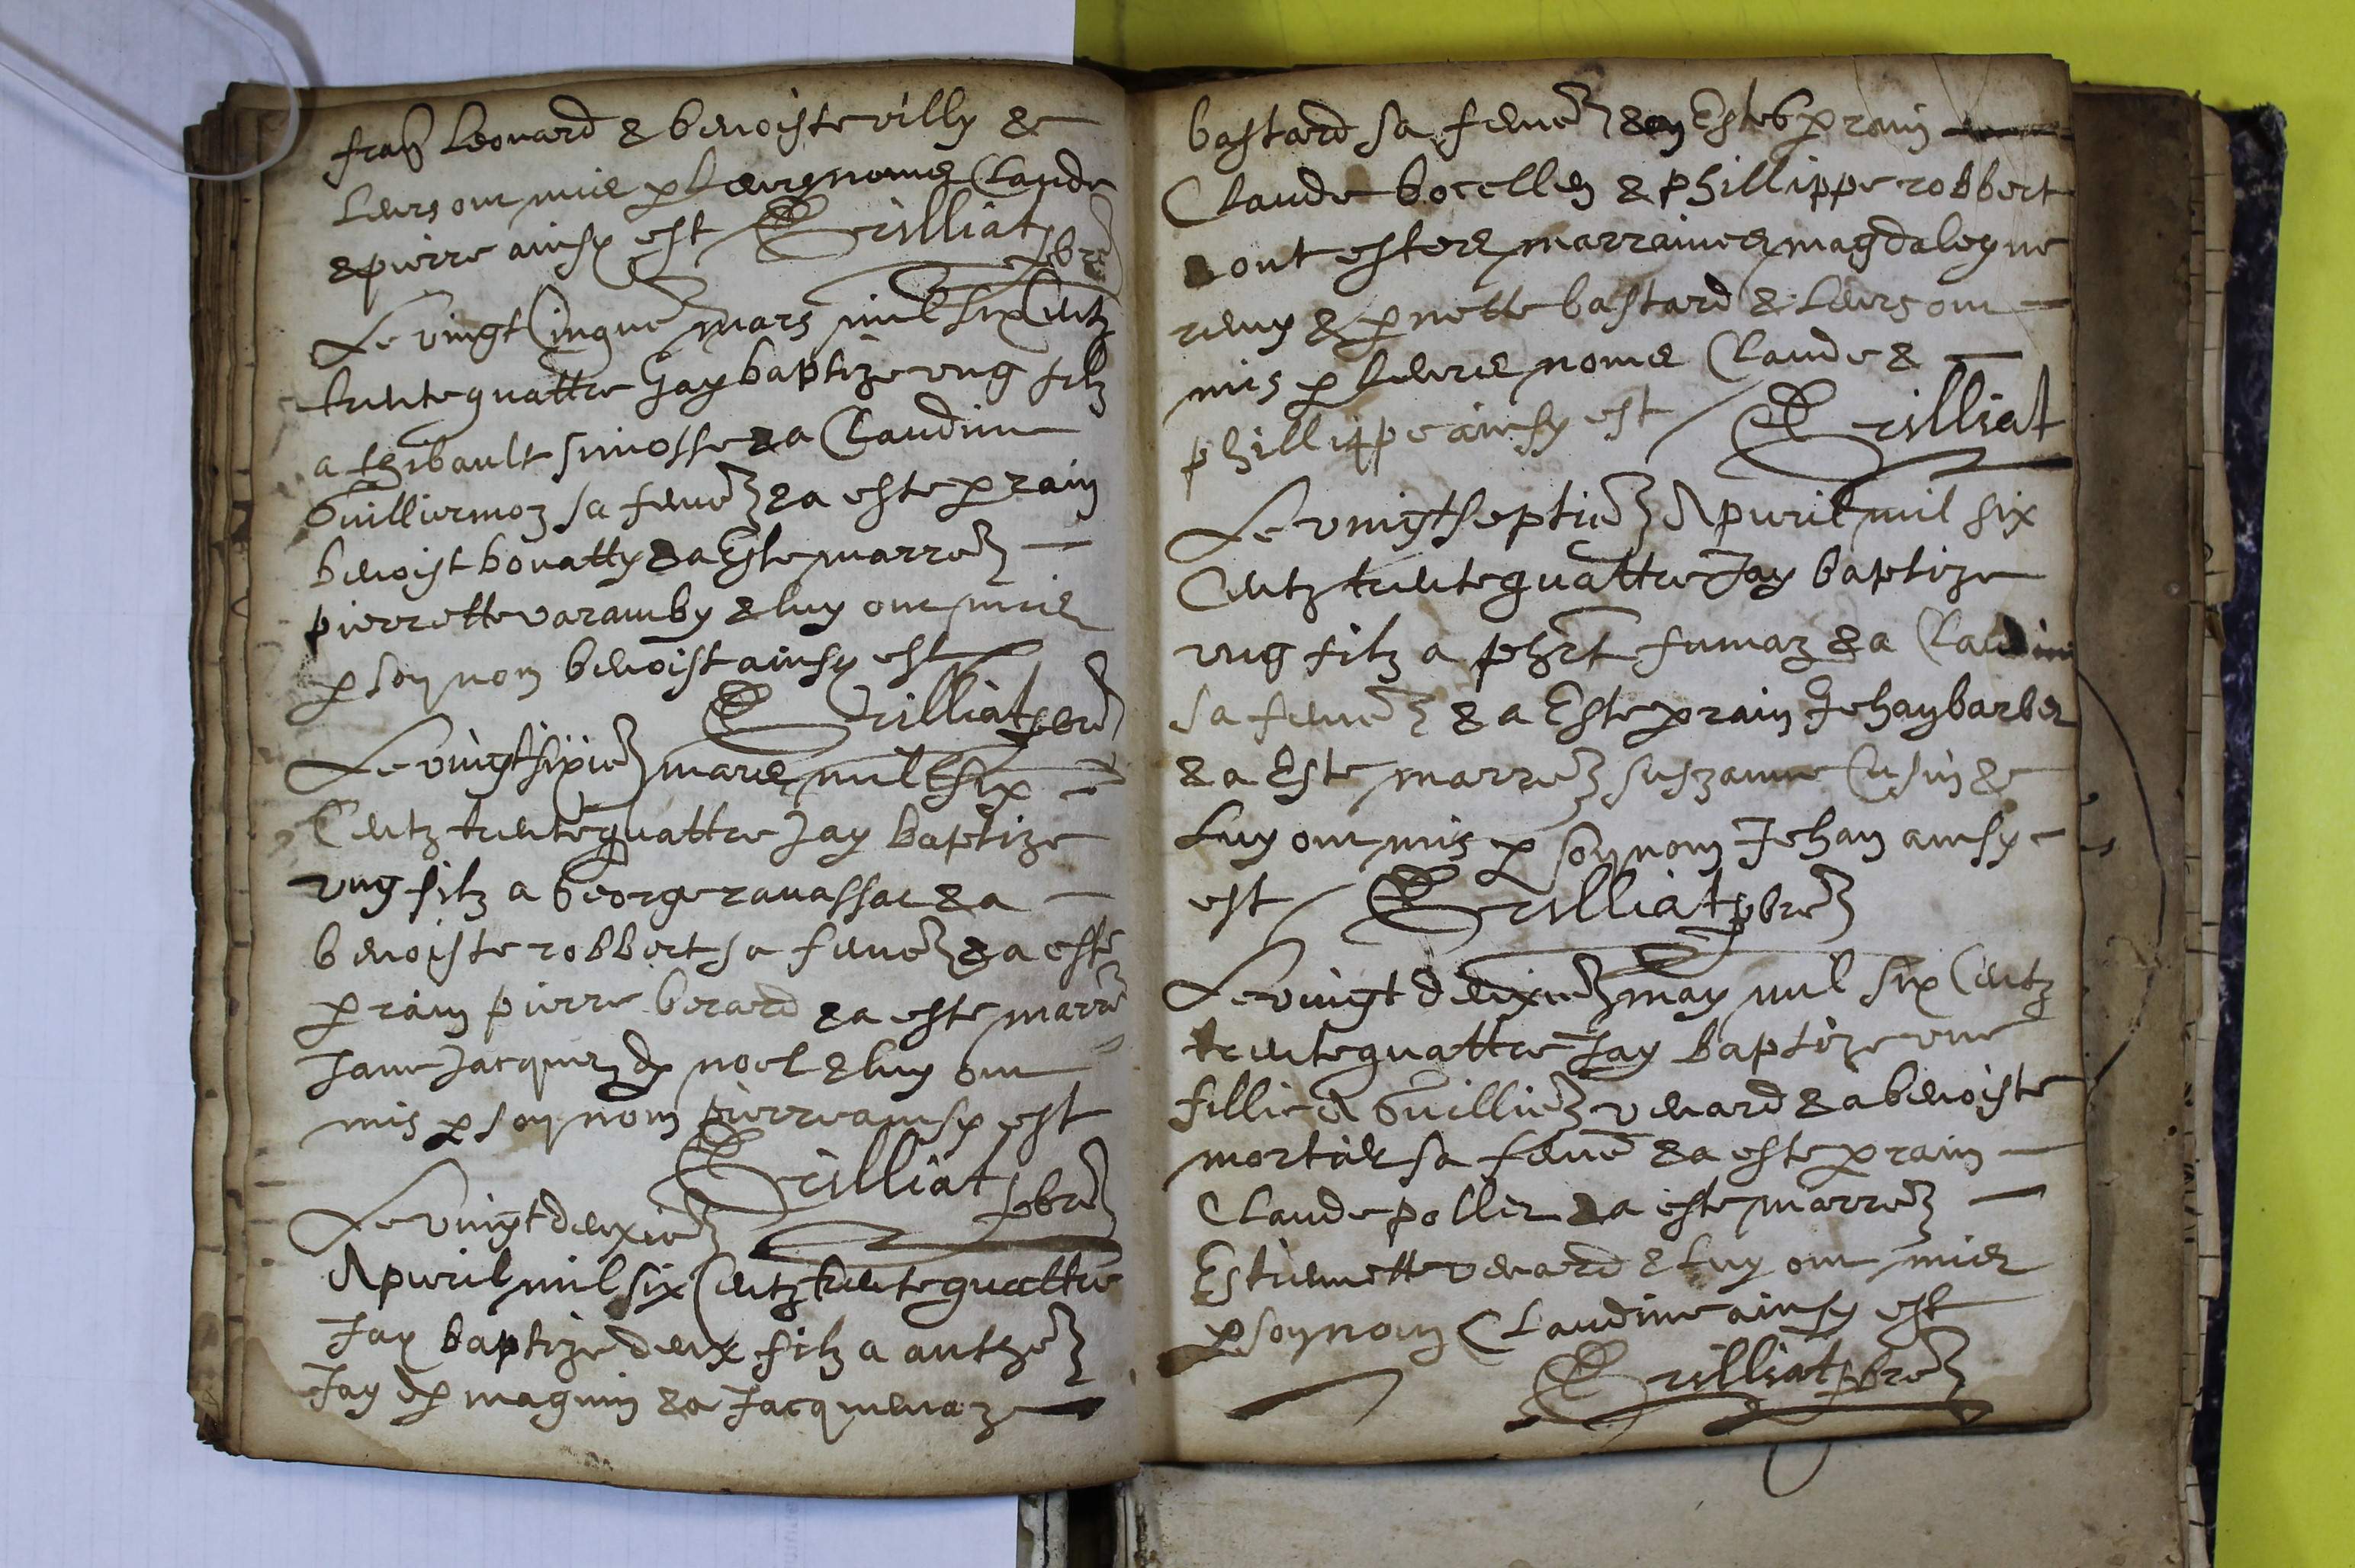 fran Leonard & benoiste villy &
leurs ont mis p leurs noms Claude
& pierre ainsy est Trilliat pbre
Le vingt Cinque mars mil six Centz
trente quattre Jay baptize ung filz
a thibault simosse & a Claudine
Guilliermoz sa feme & a este p rain
benoist bonatty & a Este marre
pierrette varamby & luy ont mis
p son nom benoist ainsy est
Trilliat pbre
Le vingt sixie mars mil six
Centz trente quattre Jay baptize
ung filz a George ravassac & a
benoiste robbert sa feme & a este
p rain pierre berard & a este marre
Jane Jacquez dp noel & luy ont
mis p son nom pierre ainsy est
Trilliat pbre
Le vingt deuxie
Apuril mil six Centz trente quattre
Jay baptize deux filz a anthe
Jay dp magnin & a Jacquemaz
bastard sa feme & on Estes p rain
Claude bocellen & phillippe robbert
& ont estees marraines magdaleyne
remy & p nette bastard & leurs ont
mis p leurs noms Claude &
phillippe ainsy est Trilliat
Le vingt septie Apuril mil six
Centz trente quattre Jay baptize
ung filz a phbt fumaz & a
sa feme & a Este p rain Jehan barbez
& a Este marre suszanne Cusin &
luy ont mis p son nom Jehan ainsy
est Trilliat pbre
Le vingt deuxie may mil six Centz
trente quattre Jay baptize une
fillie a Guillie venard & a benoiste
mortier sa feme & a este p rain
Claude pollez & a este marre
Estiennette venard & luy ont mis
p son nom Claudine ainsy est
Trilliat pbre